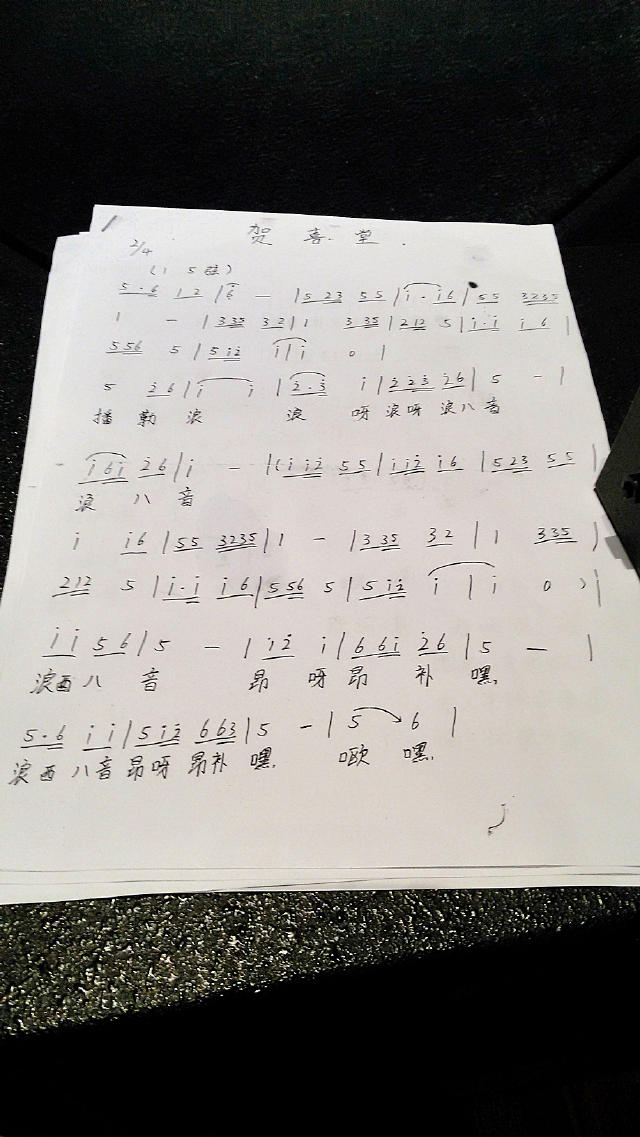 贺喜堂.
2/4
(1 5弦)
5·6 1 2 | 6 — | 5 23 55 | i·i6 | 55 3235
1 — | 335 32 | 1 335 | 212 5 | i·i i6 |
556 5 | 5i2 i | i 0 |
5 26 | i i | 2·3 i | 223 26 | 5 — |
播勒浪 浪 呀浪呀浪八音
i6i 26 | i — | (i i2 55 | ii2 i6 | 523 55 |
浪八音
i i6 | 55 3235 | 1 — | 335 32 | 1 335 |
212 5 | i·i i6 | 556 5 | 5i2 i | i 0 ) |
ii 56 | 5 — | i2 i | 66i 26 | 5 — |
浪西八音 昂呀昂补嘿
5·6 ii | 5i2 663 | 5 — | 5 6 |
浪西八音昂呀昂补嘿. 呕嘿.